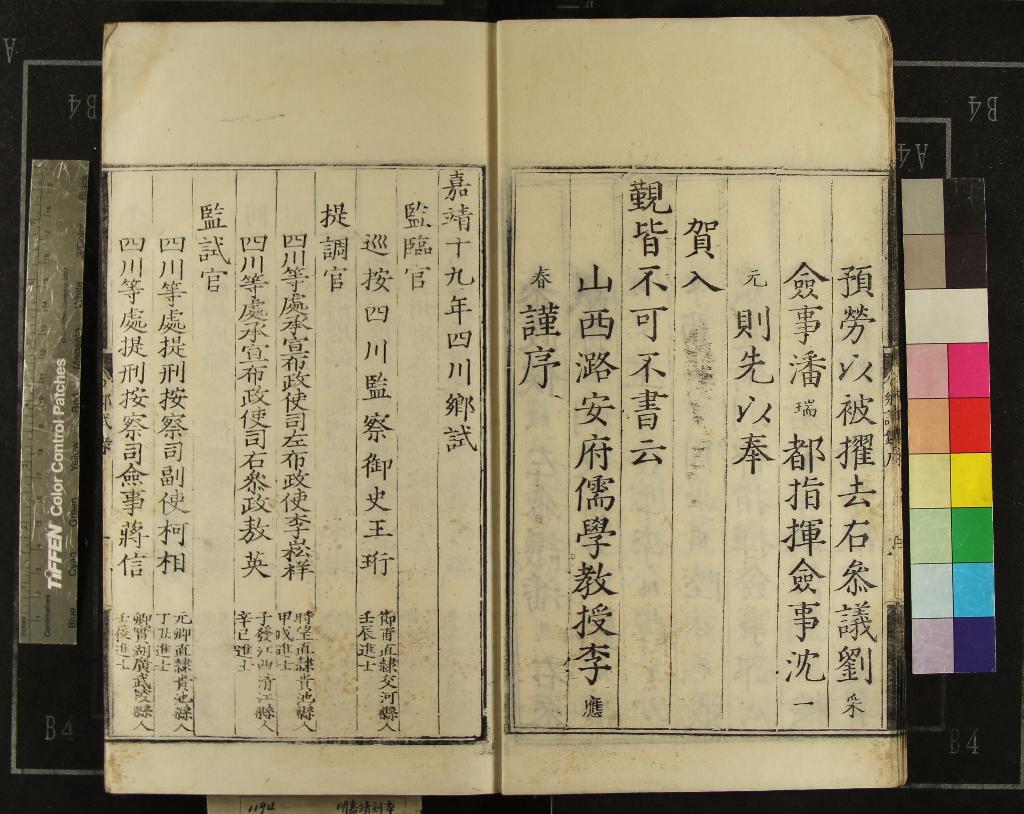 預勞以被擢去右叅議劉采
僉事潘瑞都指揮僉事沈一
元則先以奉
賀入
覲皆不可不書云
山西潞安府儒學教授李應
春謹序
嘉靖十九年四川鄉試
監臨官
巡按四川監察御史王珩 直隸交河縣人
壬辰進士
提調官
四川等處承宣布政使司左布政使李崧祥 時望直隸貴池縣人
甲戌進士
四川等處承宣布政使司右叅政敖英 子發江西清江縣人
辛巳進士
監試官
四川等處提刑按察司副使柯相 元卿直隸貴池縣人
丁丑進士
四川等處提刑按察司僉事蔣信 卿實湖廣武陵縣人
壬辰進士
TIFFEN Color Control Patches
Centimetres
Blue
B4
B4
B4
B4
A4
A
1194